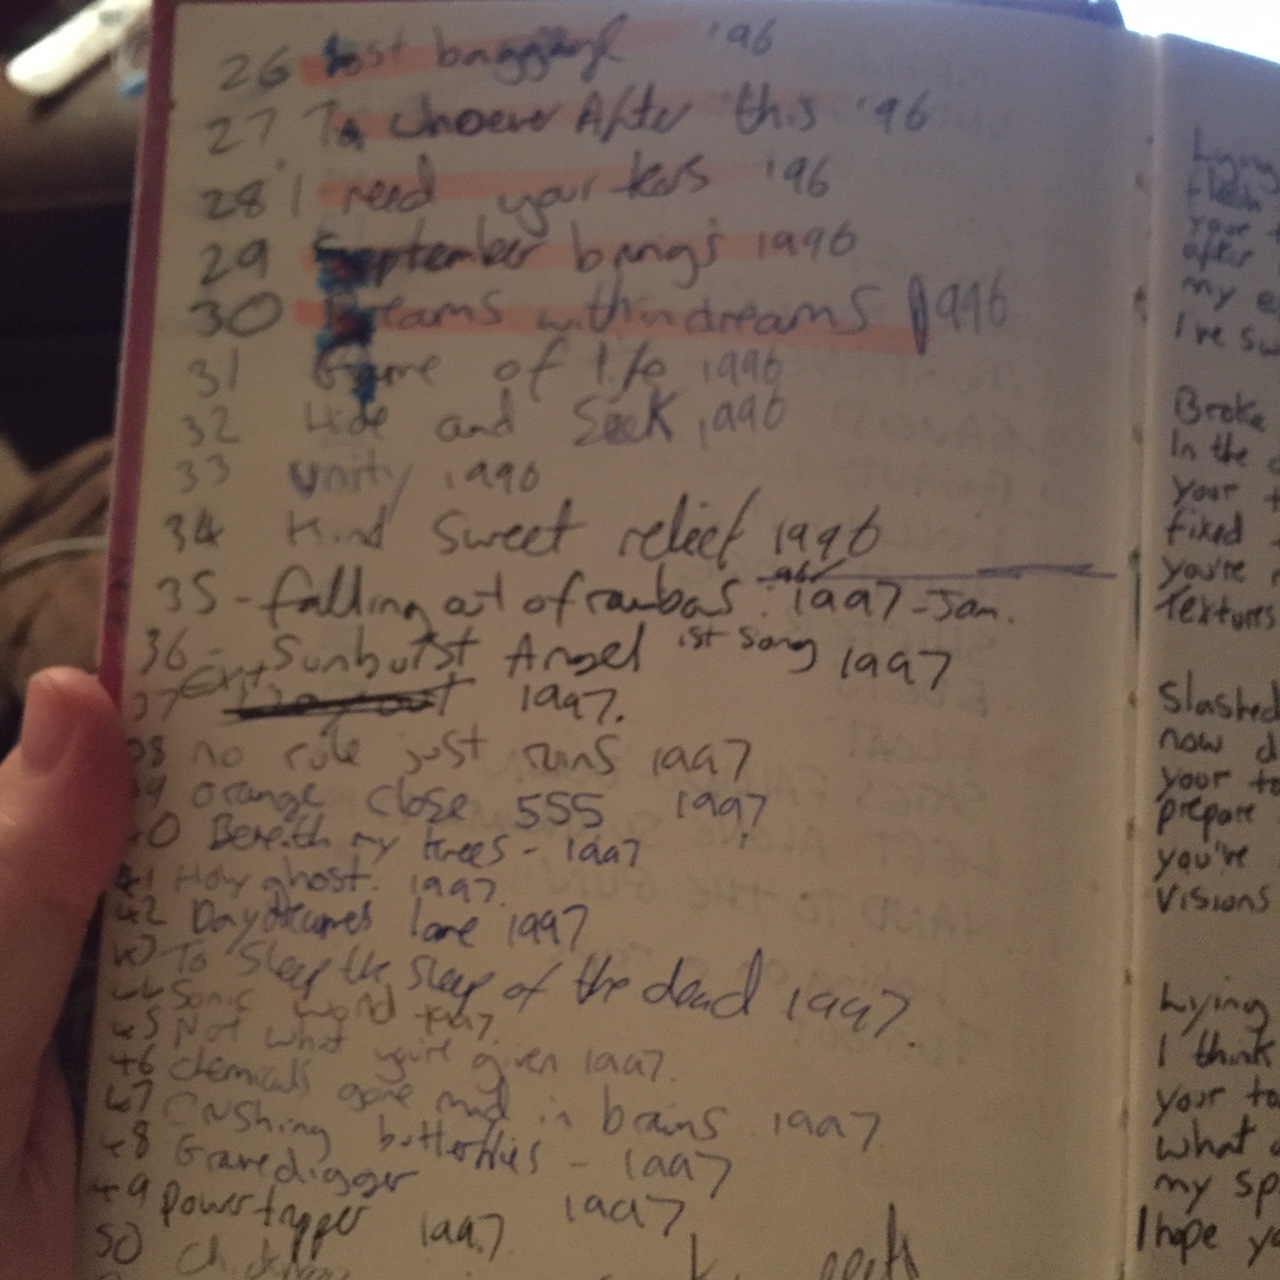 26 Lost baggage '96
27 To whoever After this '96
28 I need your '96
29 September brings 1996
30 Dreams within dreams 1996
31 Game of life 1996
32 Hide and Seek 1996
33 Unity 1996
34 Kind Sweet relief 1996
35 - falling out of 1997 - Jan.
36 - Sunburst Angel 1st Song 1997
37 Exit 1997.
38 no rule just ruins 1997
39 orange close 555 1997
40 Beneath my trees - 1997
41 Holy ghost. 1997.
42 Daydreamers lane 1997
43 To Sleep the sleep of the dead 1997.
44 Sonic word 1997.
45 Not what you're given 1997.
46 chemicals gone mad in brains 1997
47 Crushing butterflies - 1997
48 Gravedigger 1997
49 Power tripper 1997.
50
Lying
flesh
your
after
my
I've
Broke
In the
your
fixed
you're
Textures
Slashed
now
your
prepare
you're
Visions
Lying
I think
your
what
my
I hope